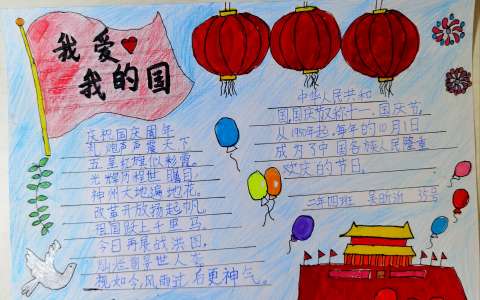 我爱
我的国
庆祝国庆周年
礼炮声声震天下
五星红旗似彩霞。
光辉历程世瞩目
神州大地遍地花。
改革开放扬起帆,
祖国路上千里马,
今日再展战洪图,
灿烂前景世人夸
观如今,风雨过,后更神气。
中华人民共和
国国庆节又称十一、国庆节,
从1950年起,每年的10月1日
成为了中国各族人民隆重
欢庆的节日。
二年四班